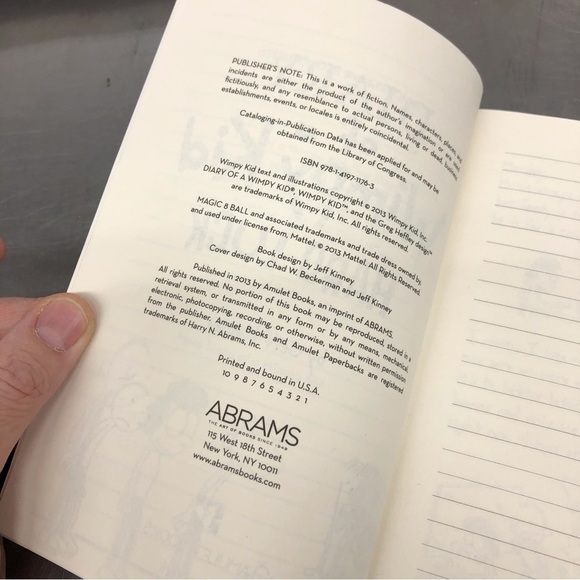 PUBLISHER'S NOTE: This is a work of fiction. Names, characters, places, and
incidents are either the product of the author's imagination or are used
fictitiously, and any resemblance to actual persons, living or dead, business
establishments, events, or locales is entirely coincidental.
Cataloging-in-Publication Data has been applied for and may be
obtained from the Library of Congress.
ISBN 978-1-4197-1176-3
Wimpy Kid text and illustrations copyright © 2013 Wimpy Kid, Inc.
DIARY OF A WIMPY KID®, WIMPY KID™, and the Greg Heffley design™
are trademarks of Wimpy Kid, Inc. All rights reserved.
MAGIC 8 BALL and associated trademarks and trade dress owned by,
and used under license from, Mattel. © 2013 Mattel. All Rights Reserved.
Book design by Jeff Kinney
Cover design by Chad W. Beckerman and Jeff Kinney
Published in 2013 by Amulet Books, an imprint of ABRAMS.
All rights reserved. No portion of this book may be reproduced, stored in a
retrieval system, or transmitted in any form or by any means, mechanical,
electronic, photocopying, recording, or otherwise, without written permission
from the publisher. Amulet Books and Amulet Paperbacks are registered
trademarks of Harry N. Abrams, Inc.
Printed and bound in U.S.A.
10 9 8 7 6 5 4 3 2 1
ABRAMS
THE ART OF BOOKS SINCE 1949
115 West 18th Street
New York, NY 10011
www.abramsbooks.com